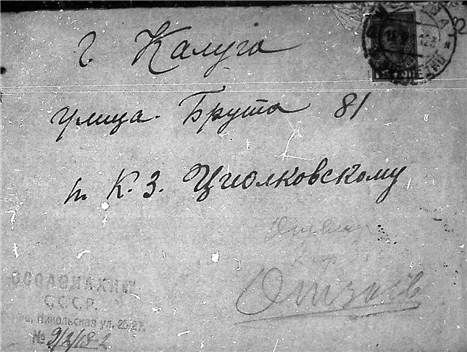 г. Калуга
улица Брута 81
К. Э. Циолковскому
ОСОАВИАХИМ
С.С.С.Р.
Никольская ул. 25-27.
№
Отзыв